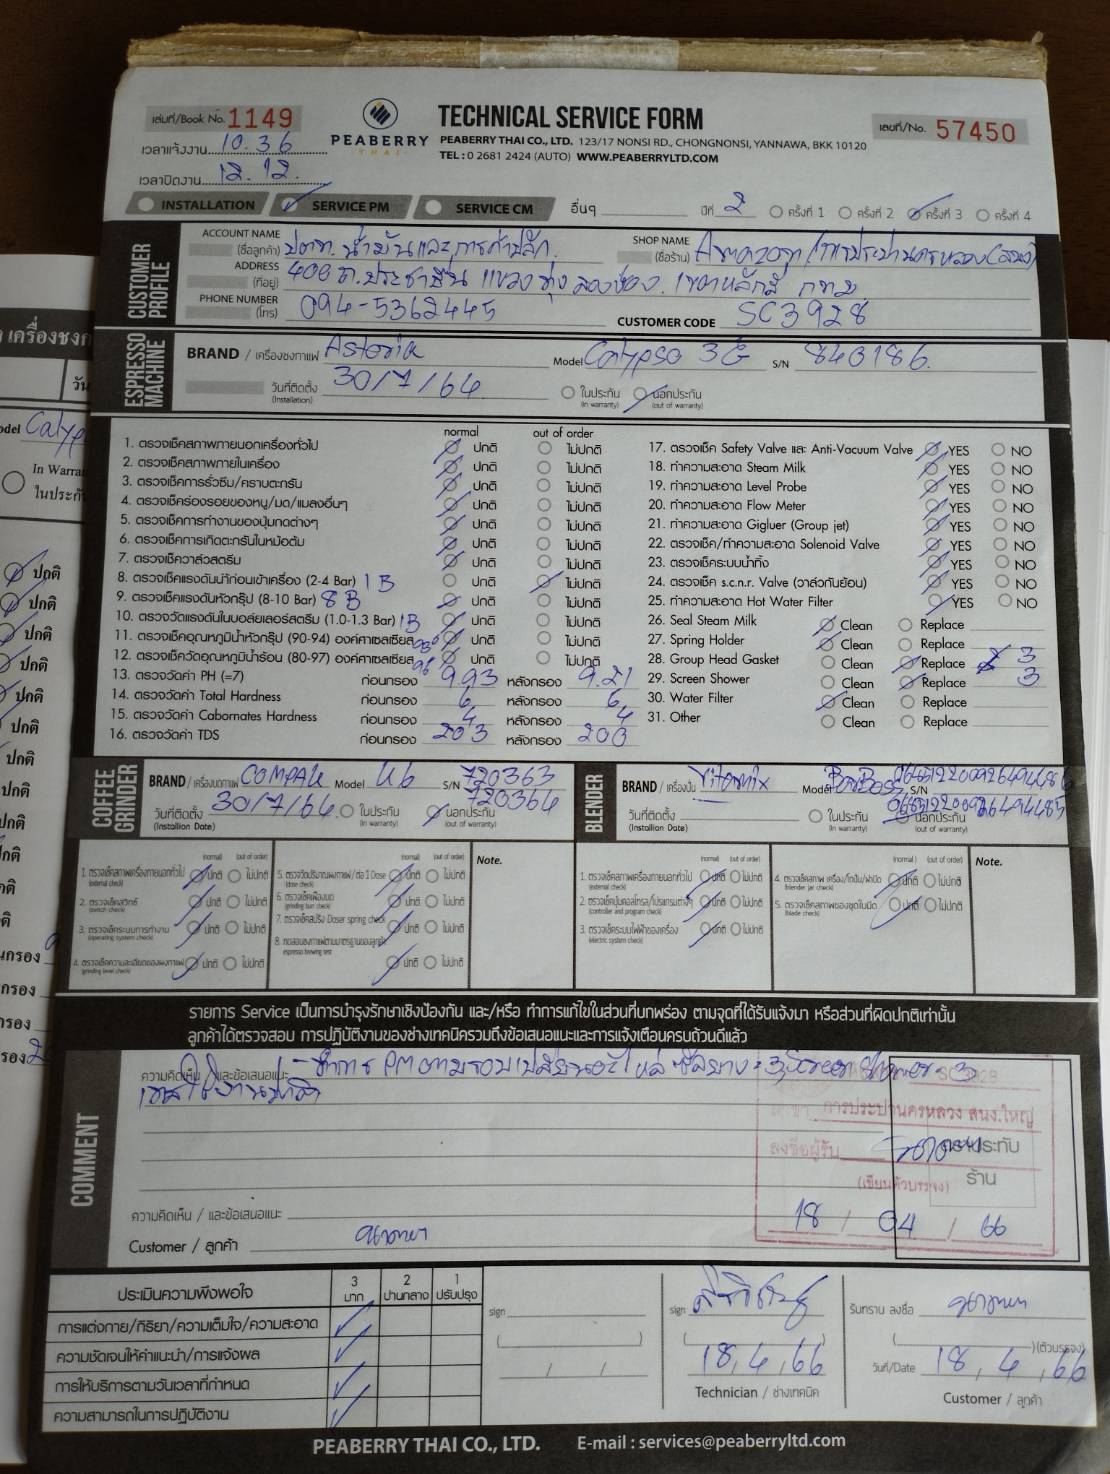 เล่มที่/Book No. 1149
PEABERRY
THAI
TECHNICAL SERVICE FORM
PEABERRY THAI CO., LTD. 123/17 NONSI RD., CHONGNONSI, YANNAWA, BKK 10120
TEL : 0 2681 2424 (AUTO) WWW.PEABERRYLTD.COM
เลขที่/No. 57450
เวลาแจ้งงาน 10.36
เวลาปิดงาน 12.12.
INSTALLATION SERVICE PM SERVICE CM อื่นๆ ปีที่ 2 ครั้งที่ 1 ครั้งที่ 2 ครั้งที่ 3 ครั้งที่ 4
CUSTOMER PROFILE
ACCOUNT NAME (ชื่อลูกค้า) ปตท. น้ำมันและการค้าปลีก
SHOP NAME (ชื่อร้าน) Amazon
ADDRESS (ที่อยู่) 400 ถ.ประชาชื่น แขวงทุ่งสองห้อง เขตหลักสี่ กทม
PHONE NUMBER (โทร) 094-5362445 CUSTOMER CODE SC3928
ESPRESSO MACHINE
BRAND / เครื่องชงกาแฟ Astoria Model Calypso 3G S/N 840186
วันที่ติดตั้ง (Installation) 30/7/64 ในประกัน (in warranty) นอกประกัน (out of warranty)
normal out of order
1. ตรวจเช็คสภาพภายนอกเครื่องทั่วไป ปกติ ไม่ปกติ
2. ตรวจเช็คสภาพภายในเครื่อง ปกติ ไม่ปกติ
3. ตรวจเช็คการรั่วซึม/คราบตะกรัน ปกติ ไม่ปกติ
4. ตรวจเช็คร่องรอยของหนู/มด/แมลงอื่นๆ ปกติ ไม่ปกติ
5. ตรวจเช็คการทำงานของปุ่มกดต่างๆ ปกติ ไม่ปกติ
6. ตรวจเช็คการเกิดตะกรันในหม้อต้ม ปกติ ไม่ปกติ
7. ตรวจเช็ควาล์วสตรีม ปกติ ไม่ปกติ
8. ตรวจเช็คแรงดันน้ำก่อนเข้าเครื่อง (2-4 Bar) 1 B ปกติ ไม่ปกติ
9. ตรวจเช็คแรงดันหัวกรุ๊ป (8-10 Bar) 8 B ปกติ ไม่ปกติ
10. ตรวจวัดแรงดันในบอล์ยเลอร์สตรีม (1.0-1.3 Bar) 1 B ปกติ ไม่ปกติ
11. ตรวจเช็คอุณหภูมิน้ำหัวกรุ๊ป (90-94) องศาเซลเซียส ปกติ ไม่ปกติ
12. ตรวจเช็ควัดอุณหภูมิน้ำร้อน (80-97) องศาเซลเซียส 96 ปกติ ไม่ปกติ
13. ตรวจวัดค่า PH (=7) ก่อนกรอง 9.93 หลังกรอง 9.21
14. ตรวจวัดค่า Total Hardness ก่อนกรอง 6 หลังกรอง 6
15. ตรวจวัดค่า Cabornates Hardness ก่อนกรอง 4 หลังกรอง 4
16. ตรวจวัดค่า TDS ก่อนกรอง 203 หลังกรอง 200
17. ตรวจเช็ค Safety Valve และ Anti-Vacuum Valve YES NO
18. ทำความสะอาด Steam Milk YES NO
19. ทำความสะอาด Level Probe YES NO
20. ทำความสะอาด Flow Meter YES NO
21. ทำความสะอาด Gigluer (Group jet) YES NO
22. ตรวจเช็ค/ทำความสะอาด Solenoid Valve YES NO
23. ตรวจเช็คระบบน้ำทิ้ง YES NO
24. ตรวจเช็ค s.c.n.r. Valve (วาล์วกันย้อน) YES NO
25. ทำความสะอาด Hot Water Filter YES NO
26. Seal Steam Milk Clean Replace
27. Spring Holder Clean Replace
28. Group Head Gasket Clean Replace 3
29. Screen Shower Clean Replace 3
30. Water Filter Clean Replace
31. Other Clean Replace
COFFEE GRINDER
BRAND / เครื่องบดกาแฟ COMPAK Model K6 S/N 720363
720364
วันที่ติดตั้ง (Installion Date) 30/7/64 ในประกัน (in warranty) นอกประกัน (out of warranty)
BLENDER
BRAND / เครื่องปั่น Vitamix Model S/N
วันที่ติดตั้ง (Installion Date) ในประกัน (in warranty) นอกประกัน (out of warranty)
(normal) (out of order)
1. ตรวจเช็คสภาพเครื่องภายนอกทั่วไป (external check) ปกติ ไม่ปกติ
2. ตรวจเช็คสวิทช์ (switch check) ปกติ ไม่ปกติ
3. ตรวจเช็คระบบการทำงาน (operating system check) ปกติ ไม่ปกติ
4. ตรวจเช็คความละเอียดของผงกาแฟ (grinding level check) ปกติ ไม่ปกติ
5. ตรวจวัดปริมาณผงกาแฟ/ต่อ 1 Dose (dose check) ปกติ ไม่ปกติ
6. ตรวจเช็คเฟืองบด (grinding burr check) ปกติ ไม่ปกติ
7. ตรวจเช็คสปริง Doser spring check ปกติ ไม่ปกติ
8. ทดสอบชงกาแฟตามมาตรฐานของลูกค้า espresso brewing test ปกติ ไม่ปกติ
Note.
1. ตรวจเช็คสภาพเครื่องภายนอกทั่วไป (external check) ปกติ ไม่ปกติ
2. ตรวจเช็คปุ่มคอลโทรล/โปรแกรมต่างๆ (controller and program check) ปกติ ไม่ปกติ
3. ตรวจเช็คระบบไฟฟ้าของเครื่อง (electric system check) ปกติ ไม่ปกติ
4. ตรวจเช็คสภาพ เครื่อง/โถปั่น/ฝาปิด (blender jar check) ปกติ ไม่ปกติ
5. ตรวจเช็คสภาพของชุดใบมีด (blade check) ปกติ ไม่ปกติ
Note.
รายการ Service เป็นการบำรุงรักษาเชิงป้องกัน และ/หรือ ทำการแก้ไขในส่วนที่บกพร่อง ตามจุดที่ได้รับแจ้งมา หรือส่วนที่ผิดปกติเท่านั้น
ลูกค้าได้ตรวจสอบ การปฏิบัติงานของช่างเทคนิครวมถึงข้อเสนอแนะและการแจ้งเตือนครบถ้วนดีแล้ว
COMMENT
ความคิดเห็น / และข้อเสนอแนะ - ทำการ PM ตามรอบ เปลี่ยนอะไหล่ ซีลยาง = 3, Screen Shower = 3
การประปานครหลวง สนง.ใหญ่
ลงชื่อผู้รับ
ตราประทับ
ร้าน
(เขียนตัวบรรจง)
18 / 04 / 66
ความคิดเห็น / และข้อเสนอแนะ
Customer / ลูกค้า
ประเมินความพึงพอใจ 3 มาก 2 ปานกลาง 1 ปรับปรุง
การแต่งกาย/กิริยา/ความเต็มใจ/ความสะอาด
ความชัดเจนให้คำแนะนำ/การแจ้งผล
การให้บริการตามวันเวลาที่กำหนด
ความสามารถในการปฏิบัติงาน
sign
sign
18, 4, 66
Technician / ช่างเทคนิค
รับทราบ ลงชื่อ
(ตัวบรรจง)
วันที่/Date 18, 4, 66
Customer / ลูกค้า
PEABERRY THAI CO., LTD. E-mail : services@peaberryltd.com